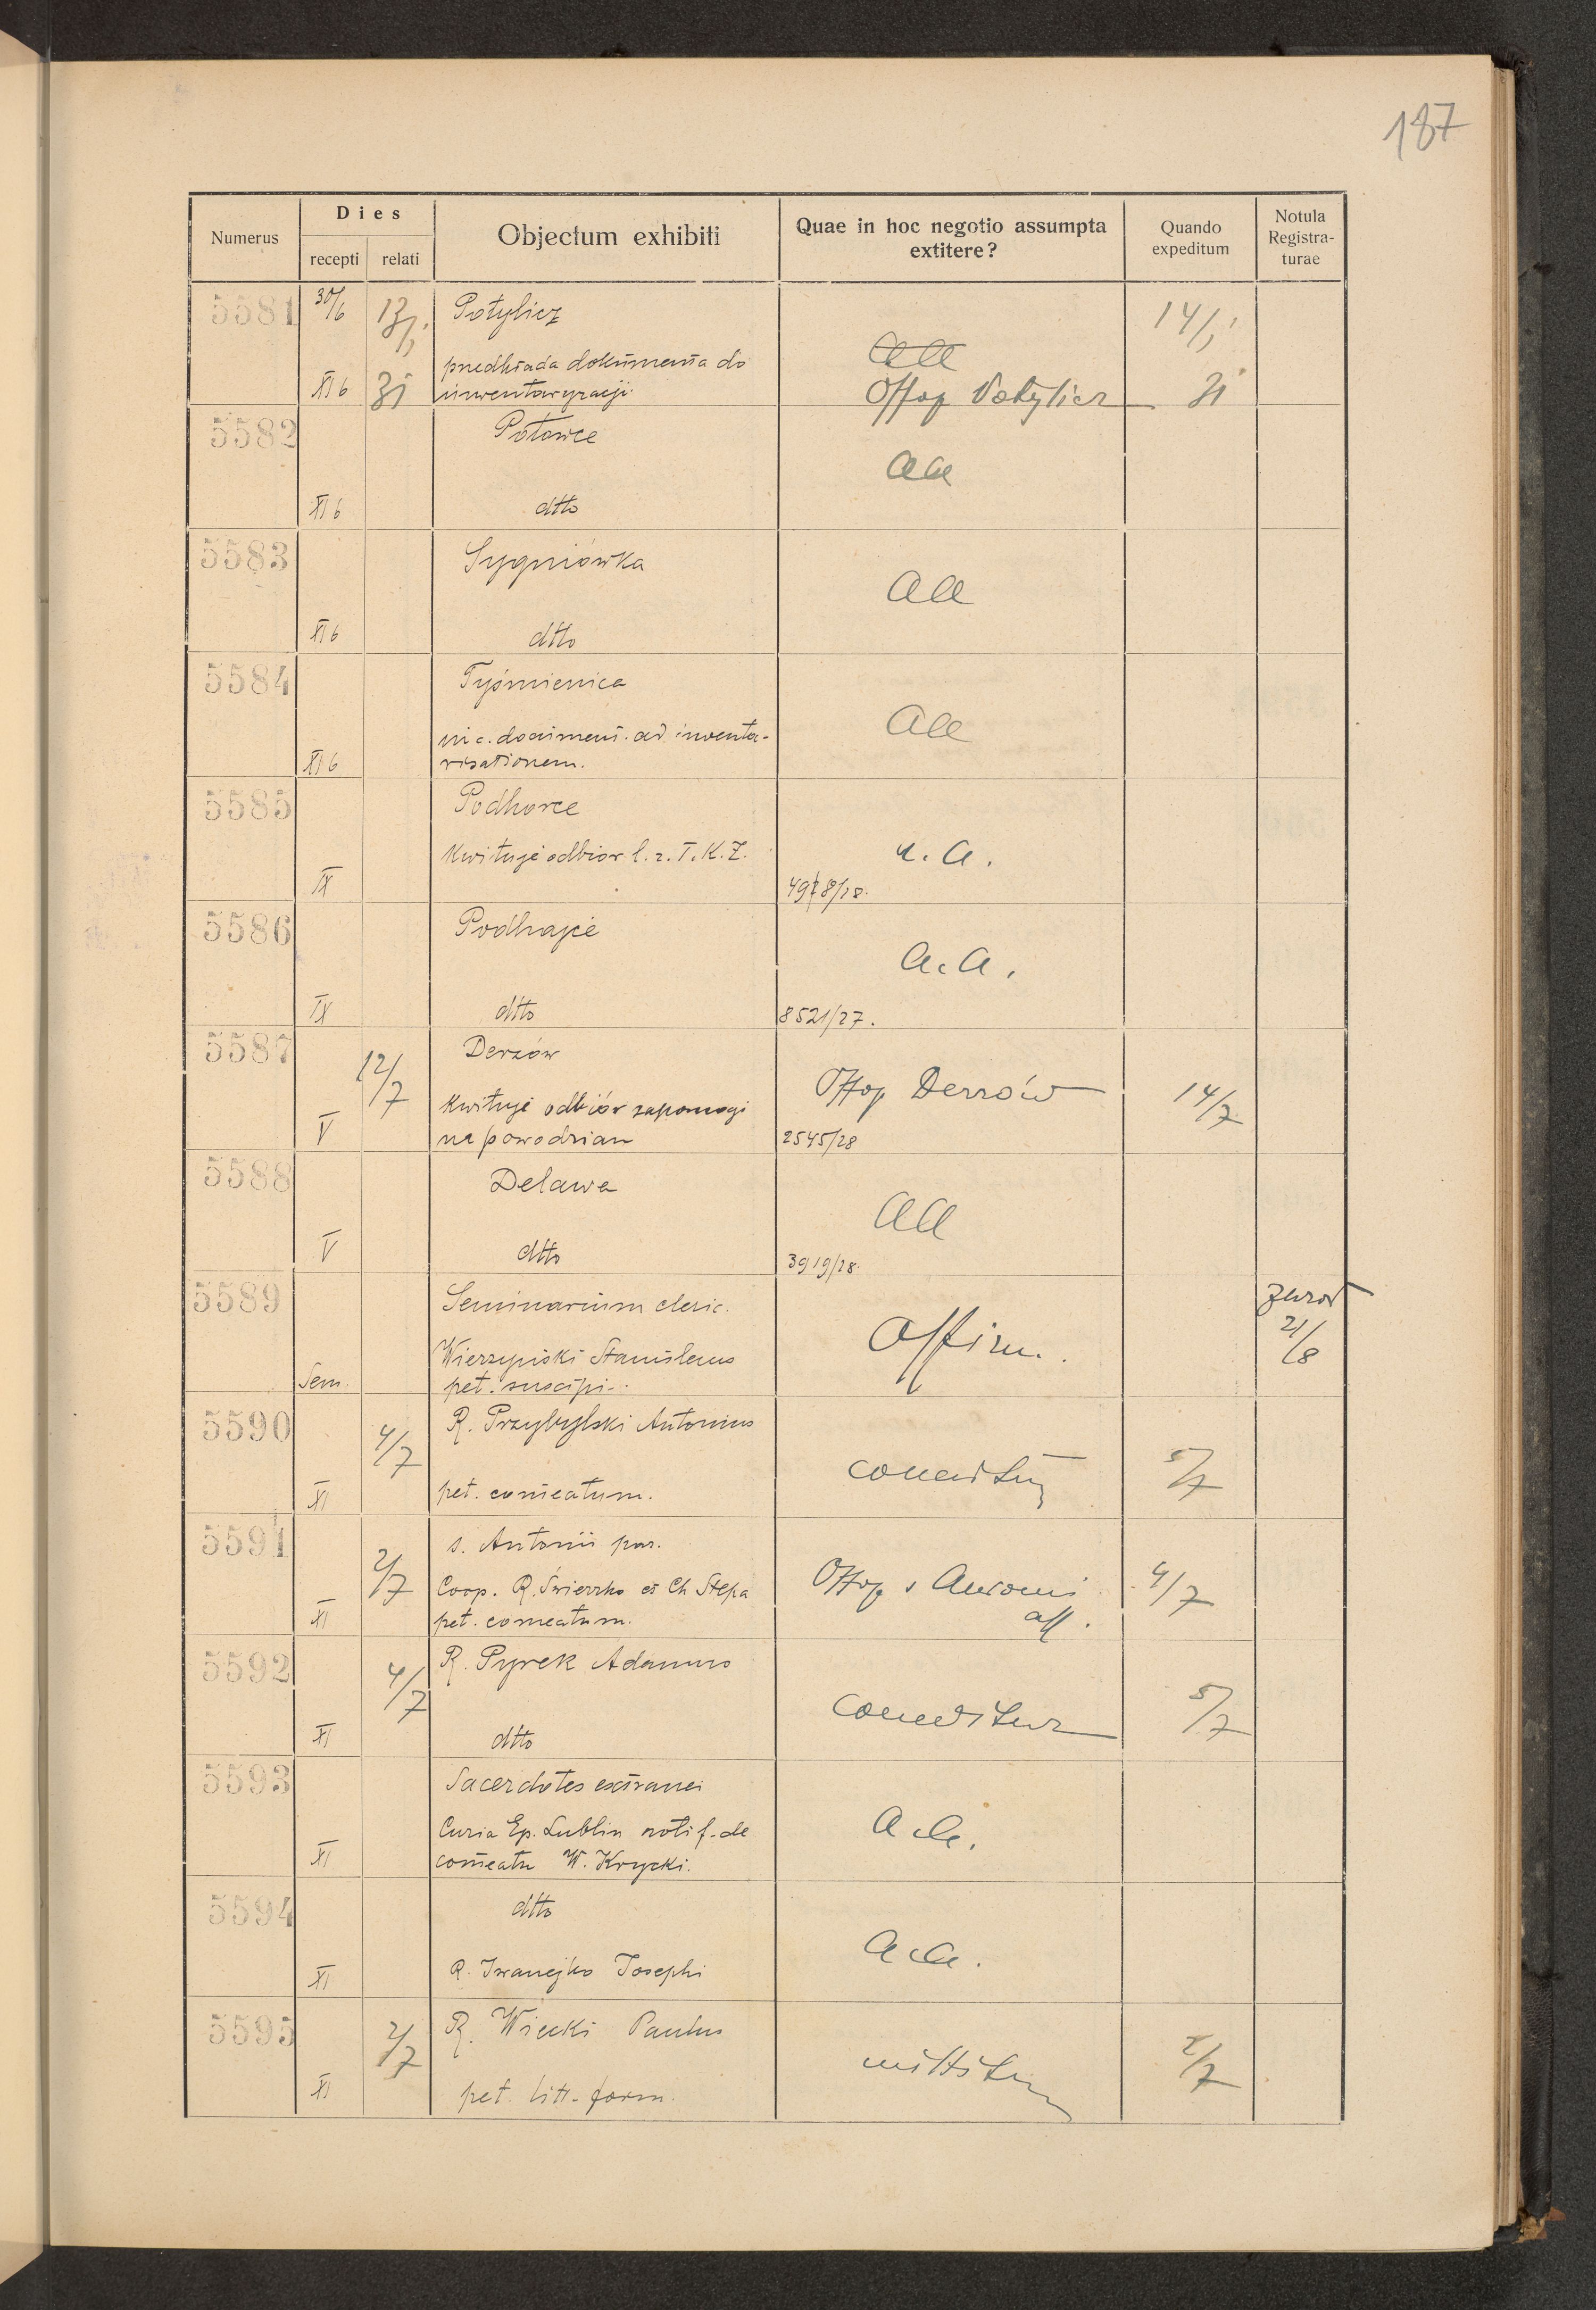 187
Numerus
Dies
recepti
relati
Objectum exhibiti
Quae in hoc negotio assumpta
extitere?
Quando
expeditum
Notula
Registra-
turae
5581 30/6 Potylicz
przedkłada dokumenta do aa
XI b 31 inwentaryzacji. Offop Potylicz 31
5582 Potowce
aa
XI b dtto
5583 Sygniówka
aa
XI b dtto
5584 Tyśmienica
aa
XI b document. ad inventa-
risationem.
5585 Podhorce
Kwituje odbiór l. z. T.K.Z. a.a.
IX
5586 Podhajce
a.a.
IX dtto 8521/27.
5587 12/7 Derzów
Kwituje odbiór zapomogi Offop Derzów 14/7
V na powodzian 2545/28
5588 Delawa
aa
V dtto 3919/28.
5589 Seminarium cleric. zwrot
Stanislaus Affirm. 21/8
Sem. pet. suscipi.
5590 4/7 R. Przybylski Antonius
conceditur 5/7
XI pet. comeatum.
5591 s. Antonii par.
2/7 Coop. R. Świerzko et Ch Stepa Offop s Antoni 4/7
XI pet. comeatum. aff.
5592 4/7 R. Pyrek Adamus
conceditur 5/7
XI dtto
5593 Sacerdotes extranei
Curia Ep. Lublin notif. de a.a.
XI comeatu W. Krycki.
5594 dtto
a.a.
XI R. Iwanejko Josephi
5595 2/7 R. Wiecki Paulus
mittitur 2/7
XI pet. litt. form.